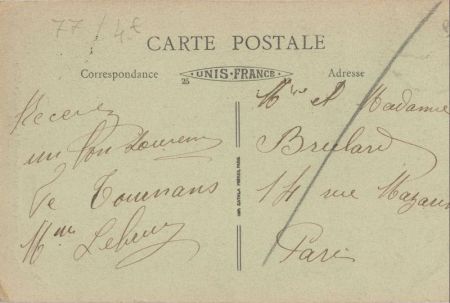 77 / 4€
CARTE POSTALE
Correspondance
UNIS-FRANCE
25
Adresse
Recevez
un bon Souvenir
de Tournans
Mme Lebeuz
Mr et Madame
Brulard
14 rue Mazarin
Paris